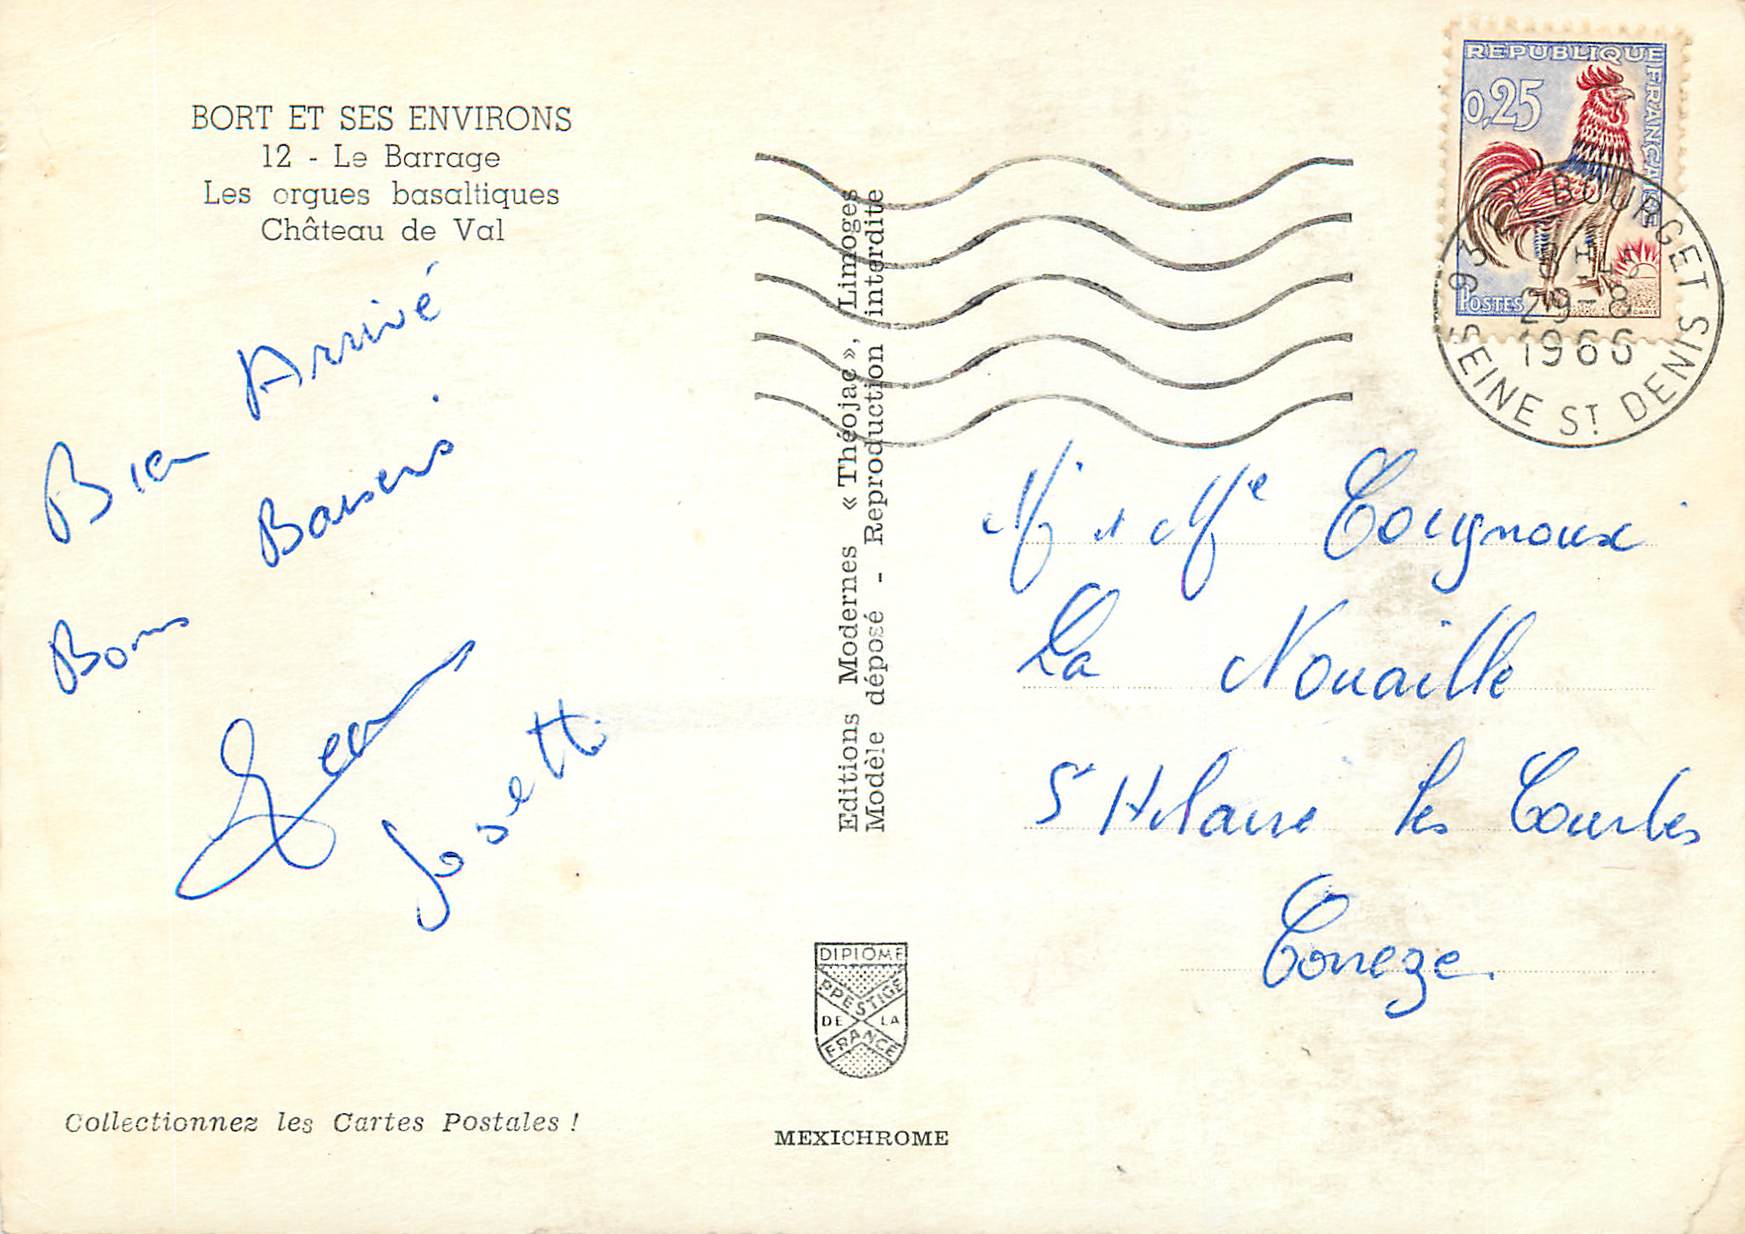 BORT ET SES ENVIRONS
12 - Le Barrage
Les orgues basaltiques
Château de Val
Bien Arrivé
Bons Baisers
Jean
Josette
Collectionnez les Cartes Postales !
Editions Modernes « Théojac », Limoges
Modèle déposé - Reproduction interdite
DIPLOME
PRESTIGE
DE LA
FRANCE
MEXICHROME
REPUBLIQUE FRANÇAISE
0,25
POSTES
93 LE BOURGET
29-8
1966
SEINE ST DENIS
Mr et Me Coignoux
La Nouaille
St Hilaire les Courbes
Correze.